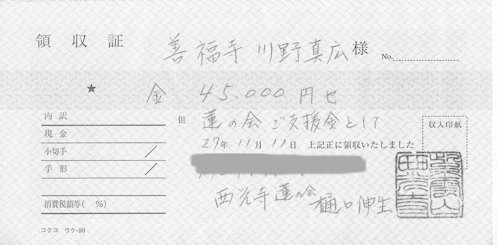 領収証 善福寺 川野真広様 No.
★ 金 45.000円也
内訳 但 蓮の会ご支援金として 収入印紙
現金 27年11月11日 上記正に領収いたしました
小切手
手形
西光寺蓮の会 樋口伸生
消費税額等( %)
コクヨ ウケ-98